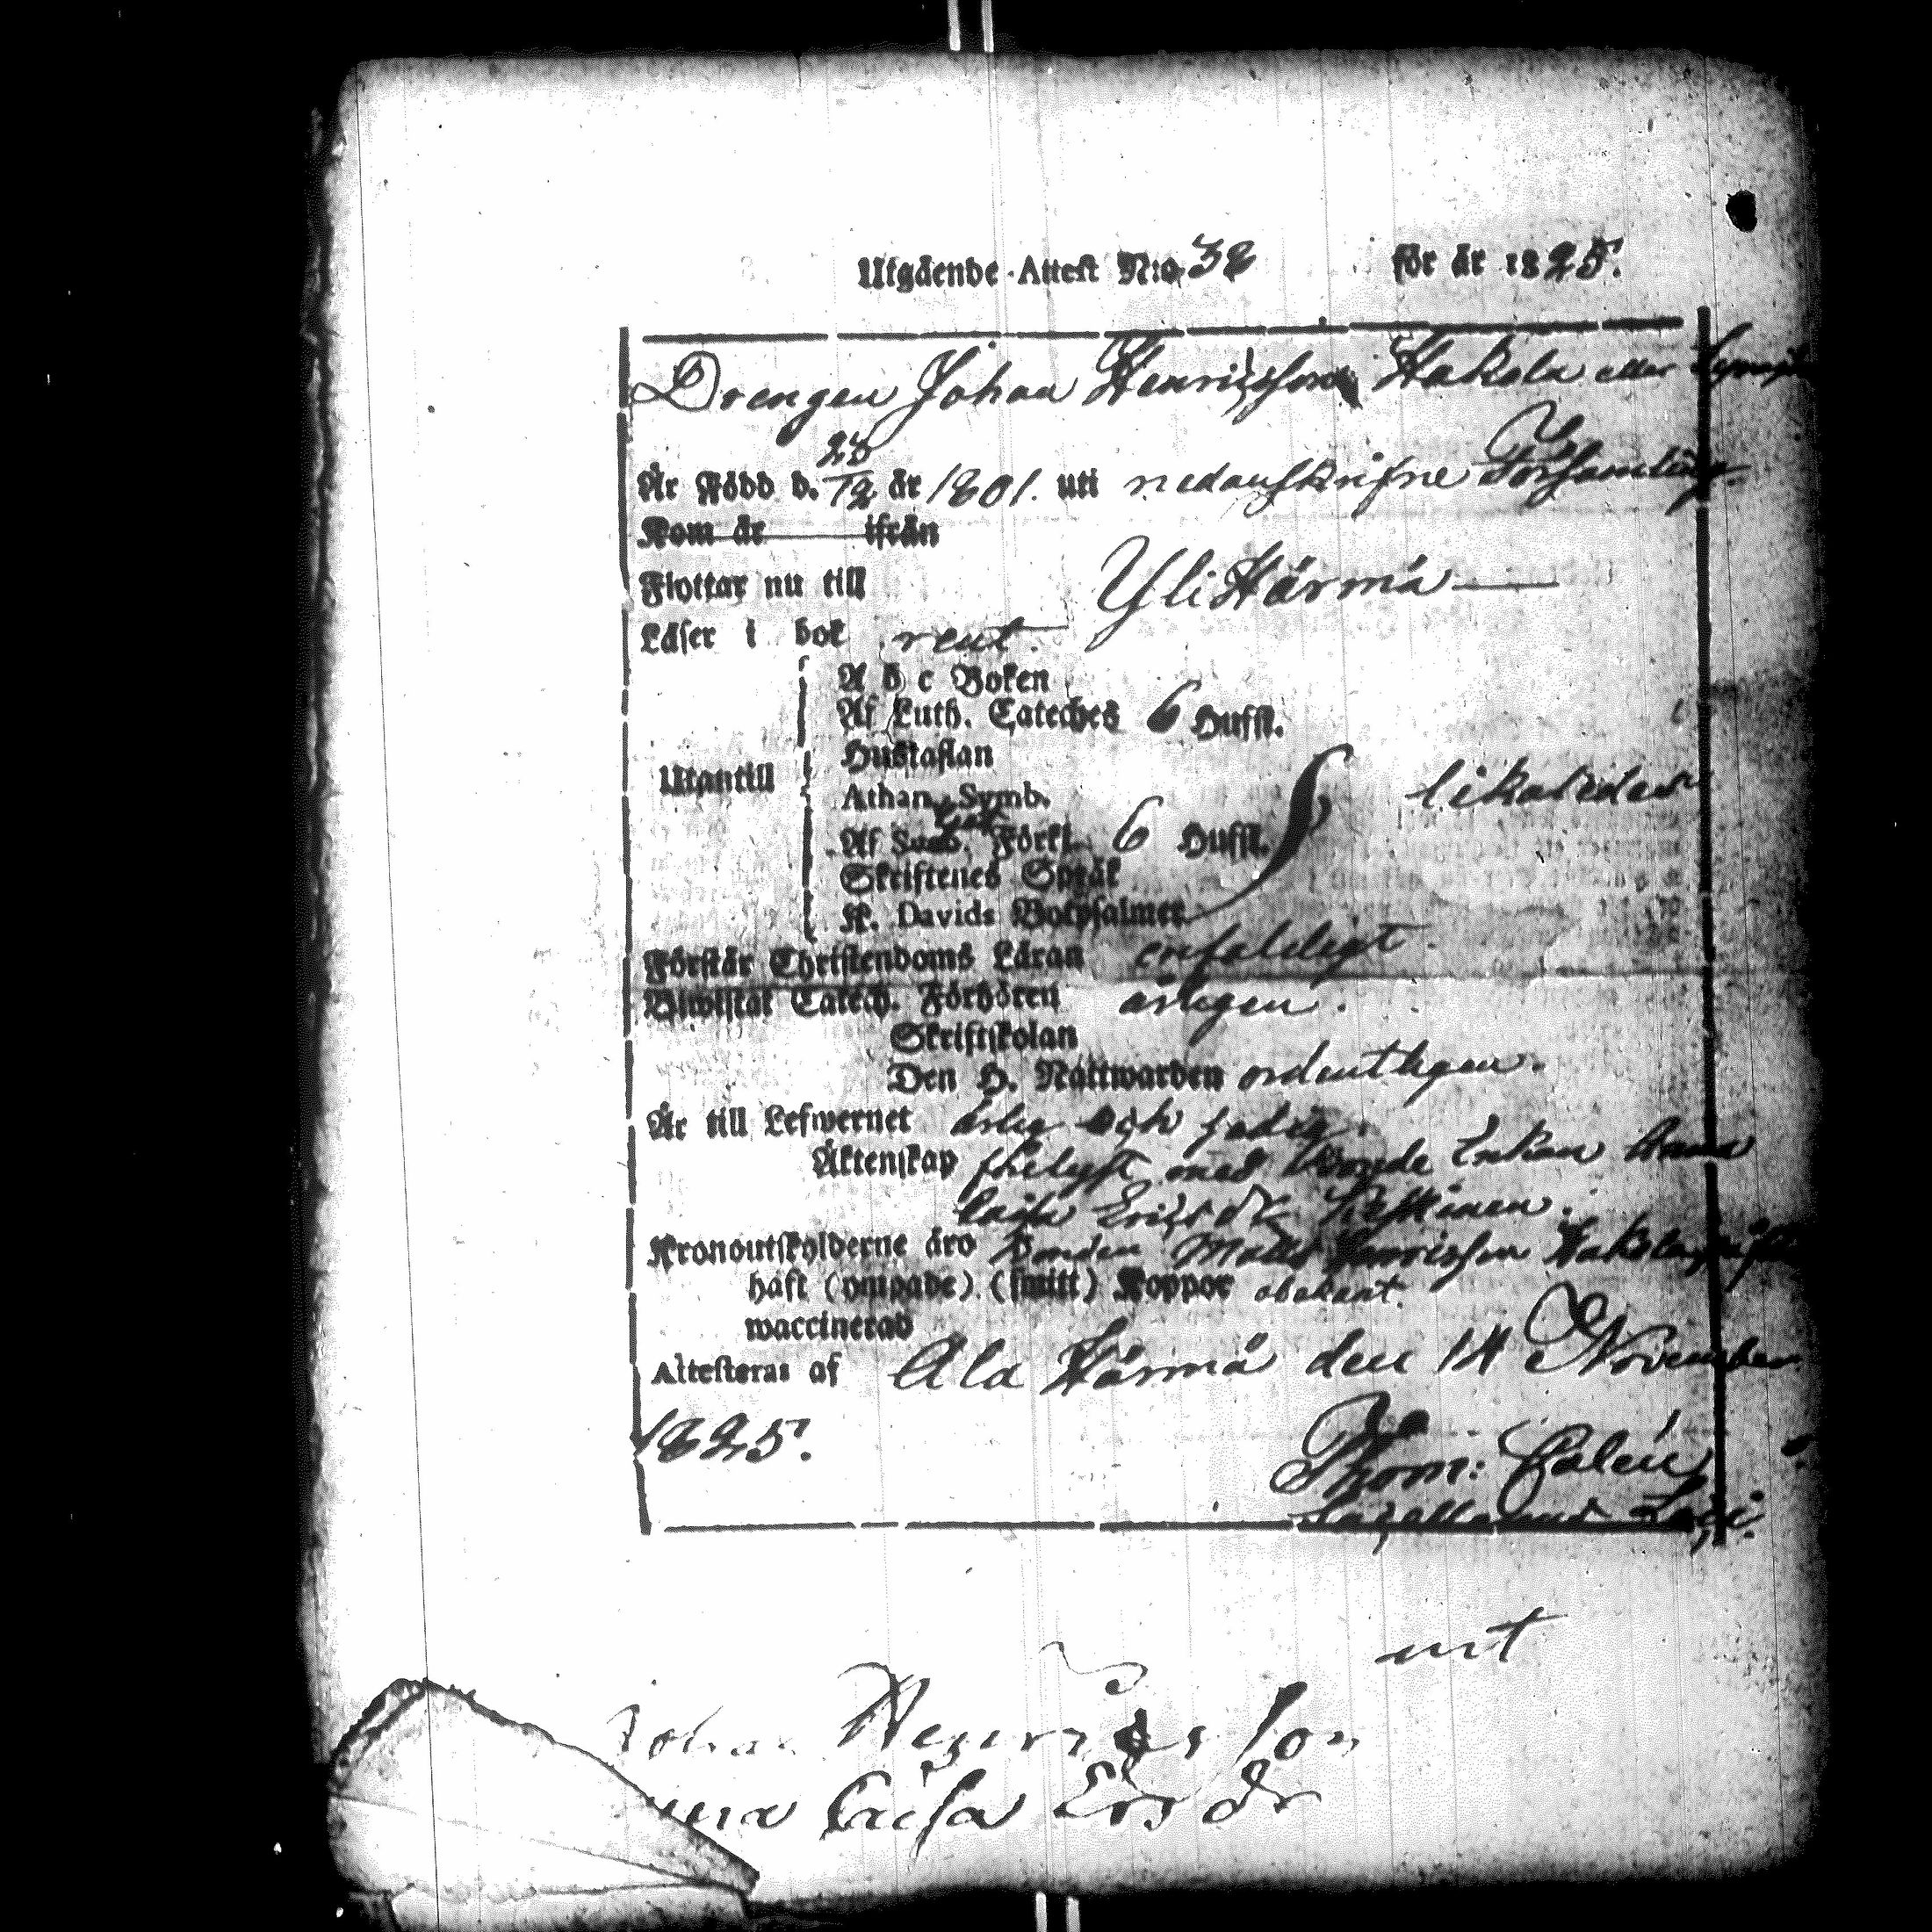 Utgående Attest N:o 38 för år 1825.
Drengen Johan Henricsson Hakola eller
Är Född d. 28/12 år 1801. uti nedanskrifne Församling
Kom år ifrån
Flyttar nu till Yli Härmä
Läser i bok rent.
A b c Boken
Af Luth. Cateches 6 Hufst.
Hustaflan
Utantill
Athan. Symb. likaledes
Af Förkl. 6 Hufst.
Skriftenes Språk
K. Davids Botpsalmer
Förstår Christendoms Läran enfaldigt
Biwistat Catech. Förhören årligen.
Skriftskolan
Den H. Nattwarden ordentligen.
Är till Lefwernet ärlig och
Äktenskap med Bonde Enkan Anna
Caisa Ericsdr
Kronoutskylderne äro Bonden Matts Henricsson Hakola
haft (ympade) (smitt) Koppor obekant.
waccinerad
Attesteras af Ala Härmä den 14 November
1825.
Thom: Calén
Capellans
mt
Johan Henricsson
Caisa Ersdr